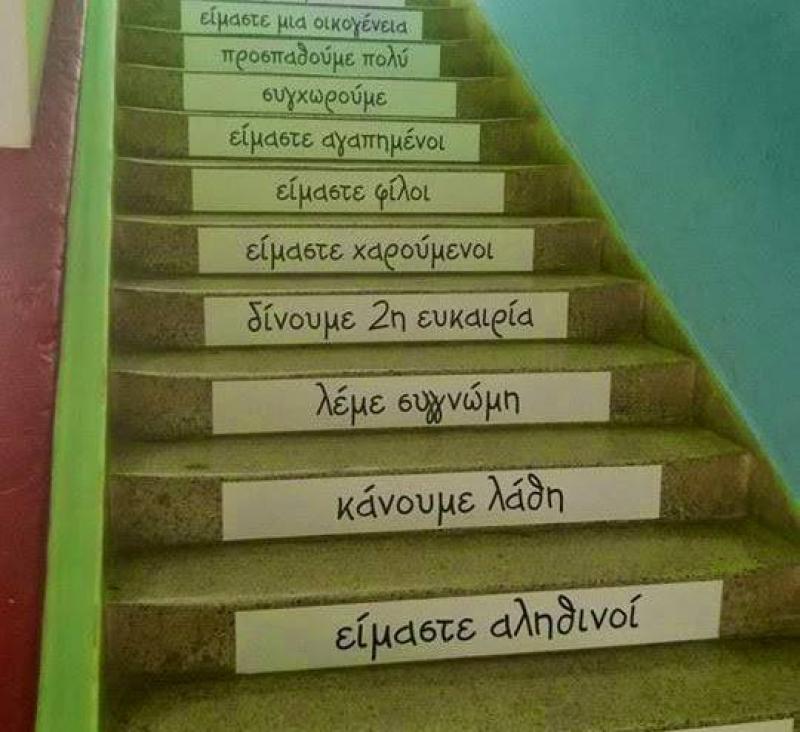 είμαστε μια οικογένεια
προσπαθούμε πολύ
συγχωρούμε
είμαστε αγαπημένοι
είμαστε φίλοι
είμαστε χαρούμενοι
δίνουμε 2η ευκαιρία
λέμε συγνώμη
κάνουμε λάθη
είμαστε αληθινοί